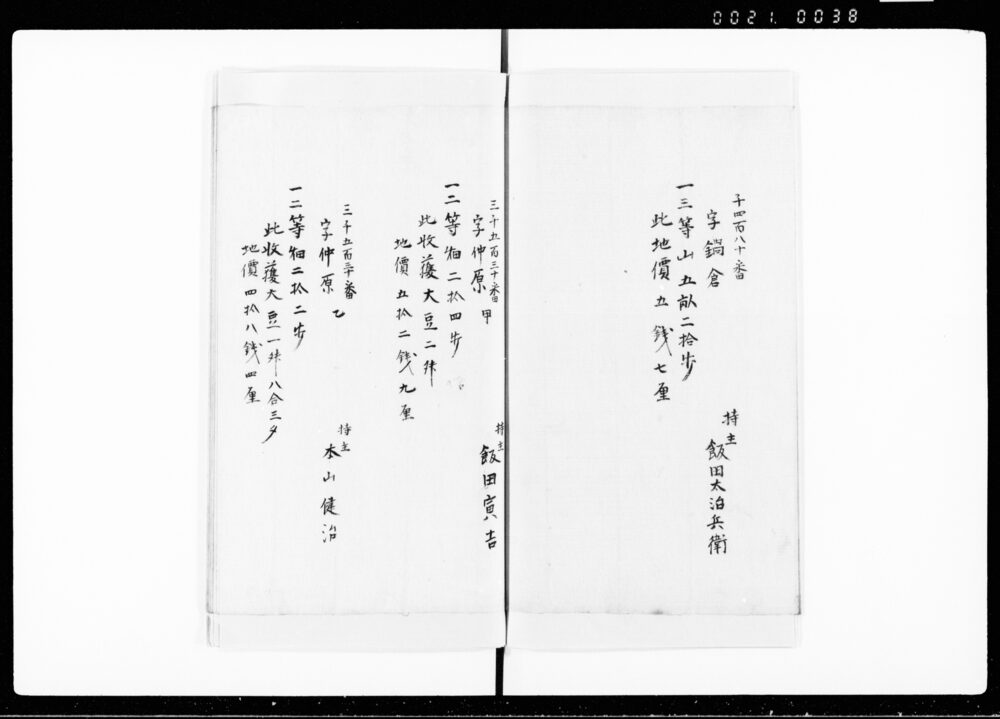 0021.0038
千四百八十番
字鍋倉
一三等山五畝二拾歩
此地價五銭七厘
持主
飯田太治兵衛
三千五百三十番甲
字仲原
一二等畑二拾四歩
此收穫大豆二舛
地價五拾二銭九厘
持主
飯田寅吉
三千五百三十番乙
字仲原
一二等畑二拾二歩
此收穫大豆一舛八合三夕
地價四拾八銭四厘
持主
本山健治